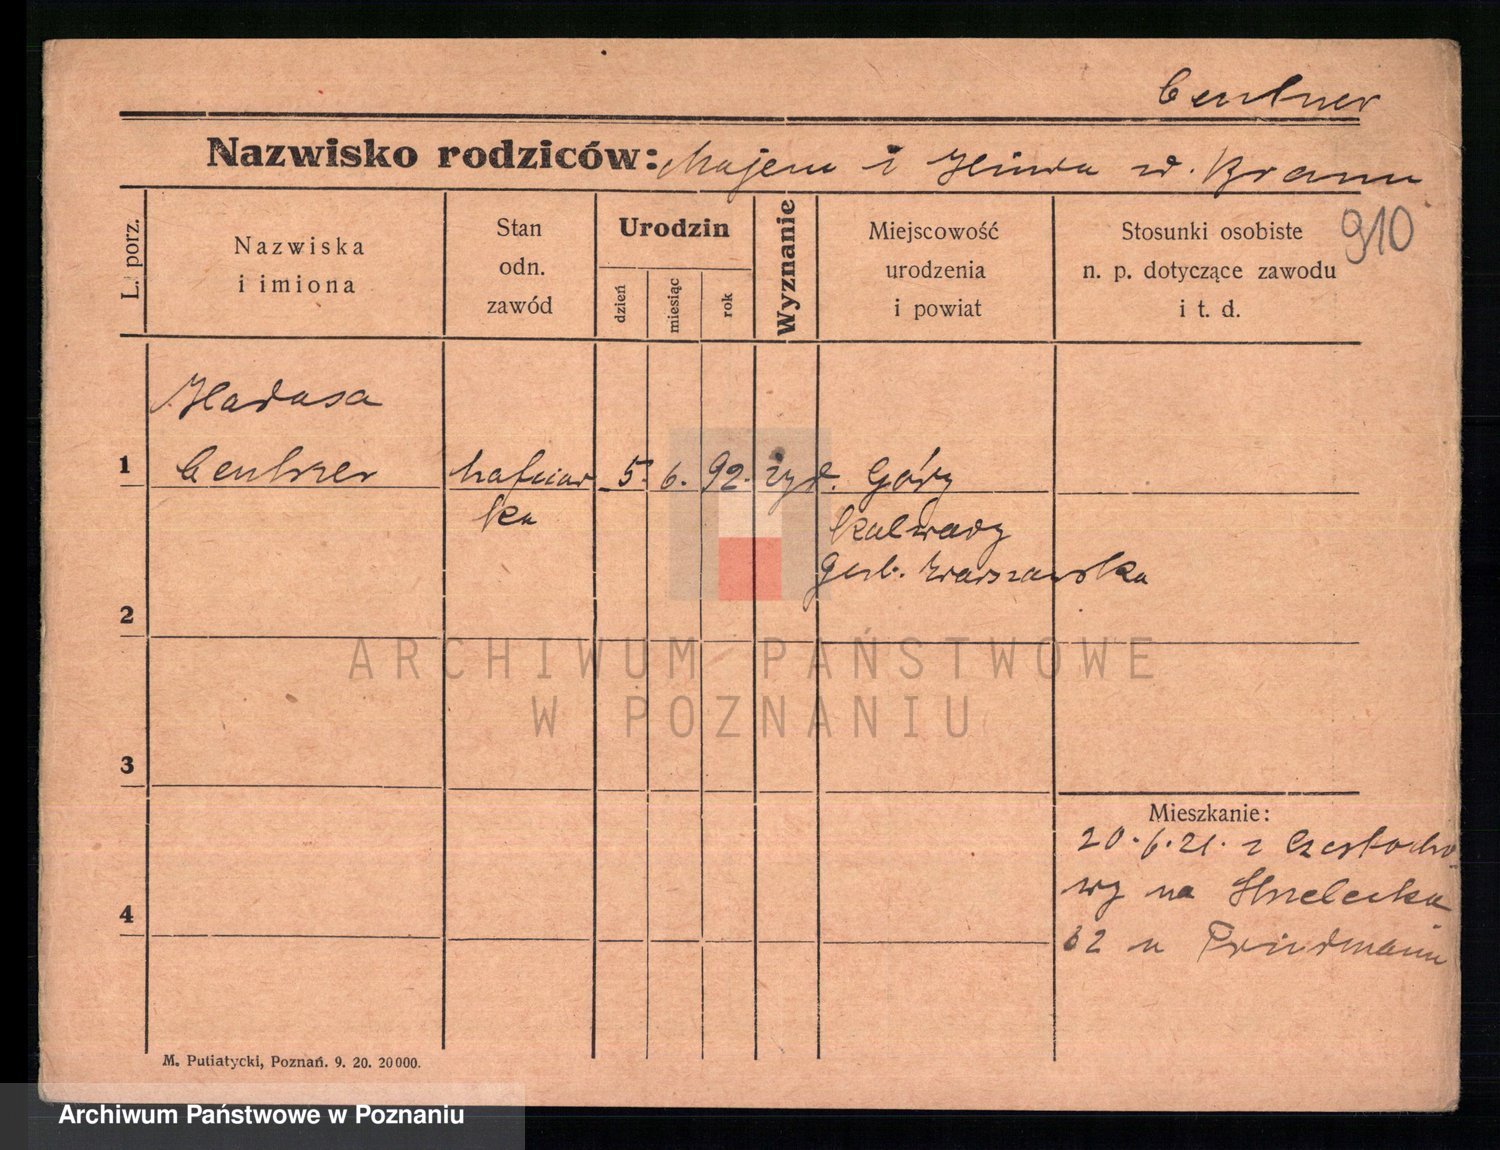 Centner
Nazwisko rodziców: Majem i Hinda z d. Bram
910
L. porz.
Nazwiska
i imiona
Stan
odn.
zawód
Urodzin
dzień
miesiąc
rok
Wyznanie
Miejscowość
urodzenia
i powiat
Stosunki osobiste
n. p. dotyczące zawodu
i t. d.
Hadasa
1 Centner hafciar 5. 6. 92. żyd. Góry
ka Kalwary
gub. Warszawska
2
3
Mieszkanie:
20.6.21. z Częstocho
wy na
4
u Friedmann
M. Putiatycki, Poznań. 9. 20. 20000.
ARCHIWUM PAŃSTWOWE
W POZNANIU
Archiwum Państwowe w Poznaniu